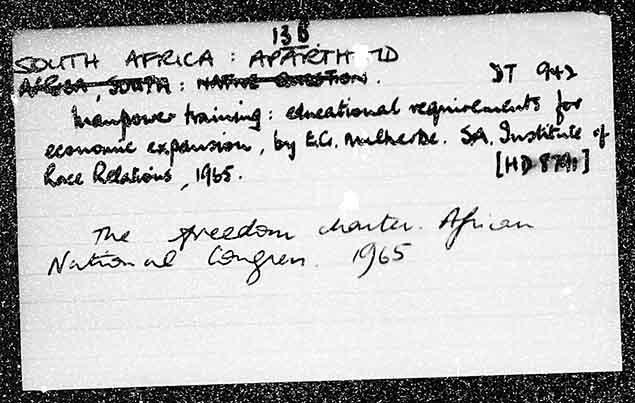 13B
SOUTH AFRICA : APARTHEID
AFRICA, SOUTH : NATIVE QUESTION.
DT 942
Manpower training : educational requirements for
economic expansion, by E.G. Malherbe. S.A. Institute of
Race Relations, 1965.
[HD 8791]
The freedom charter. African
National Congress. 1965